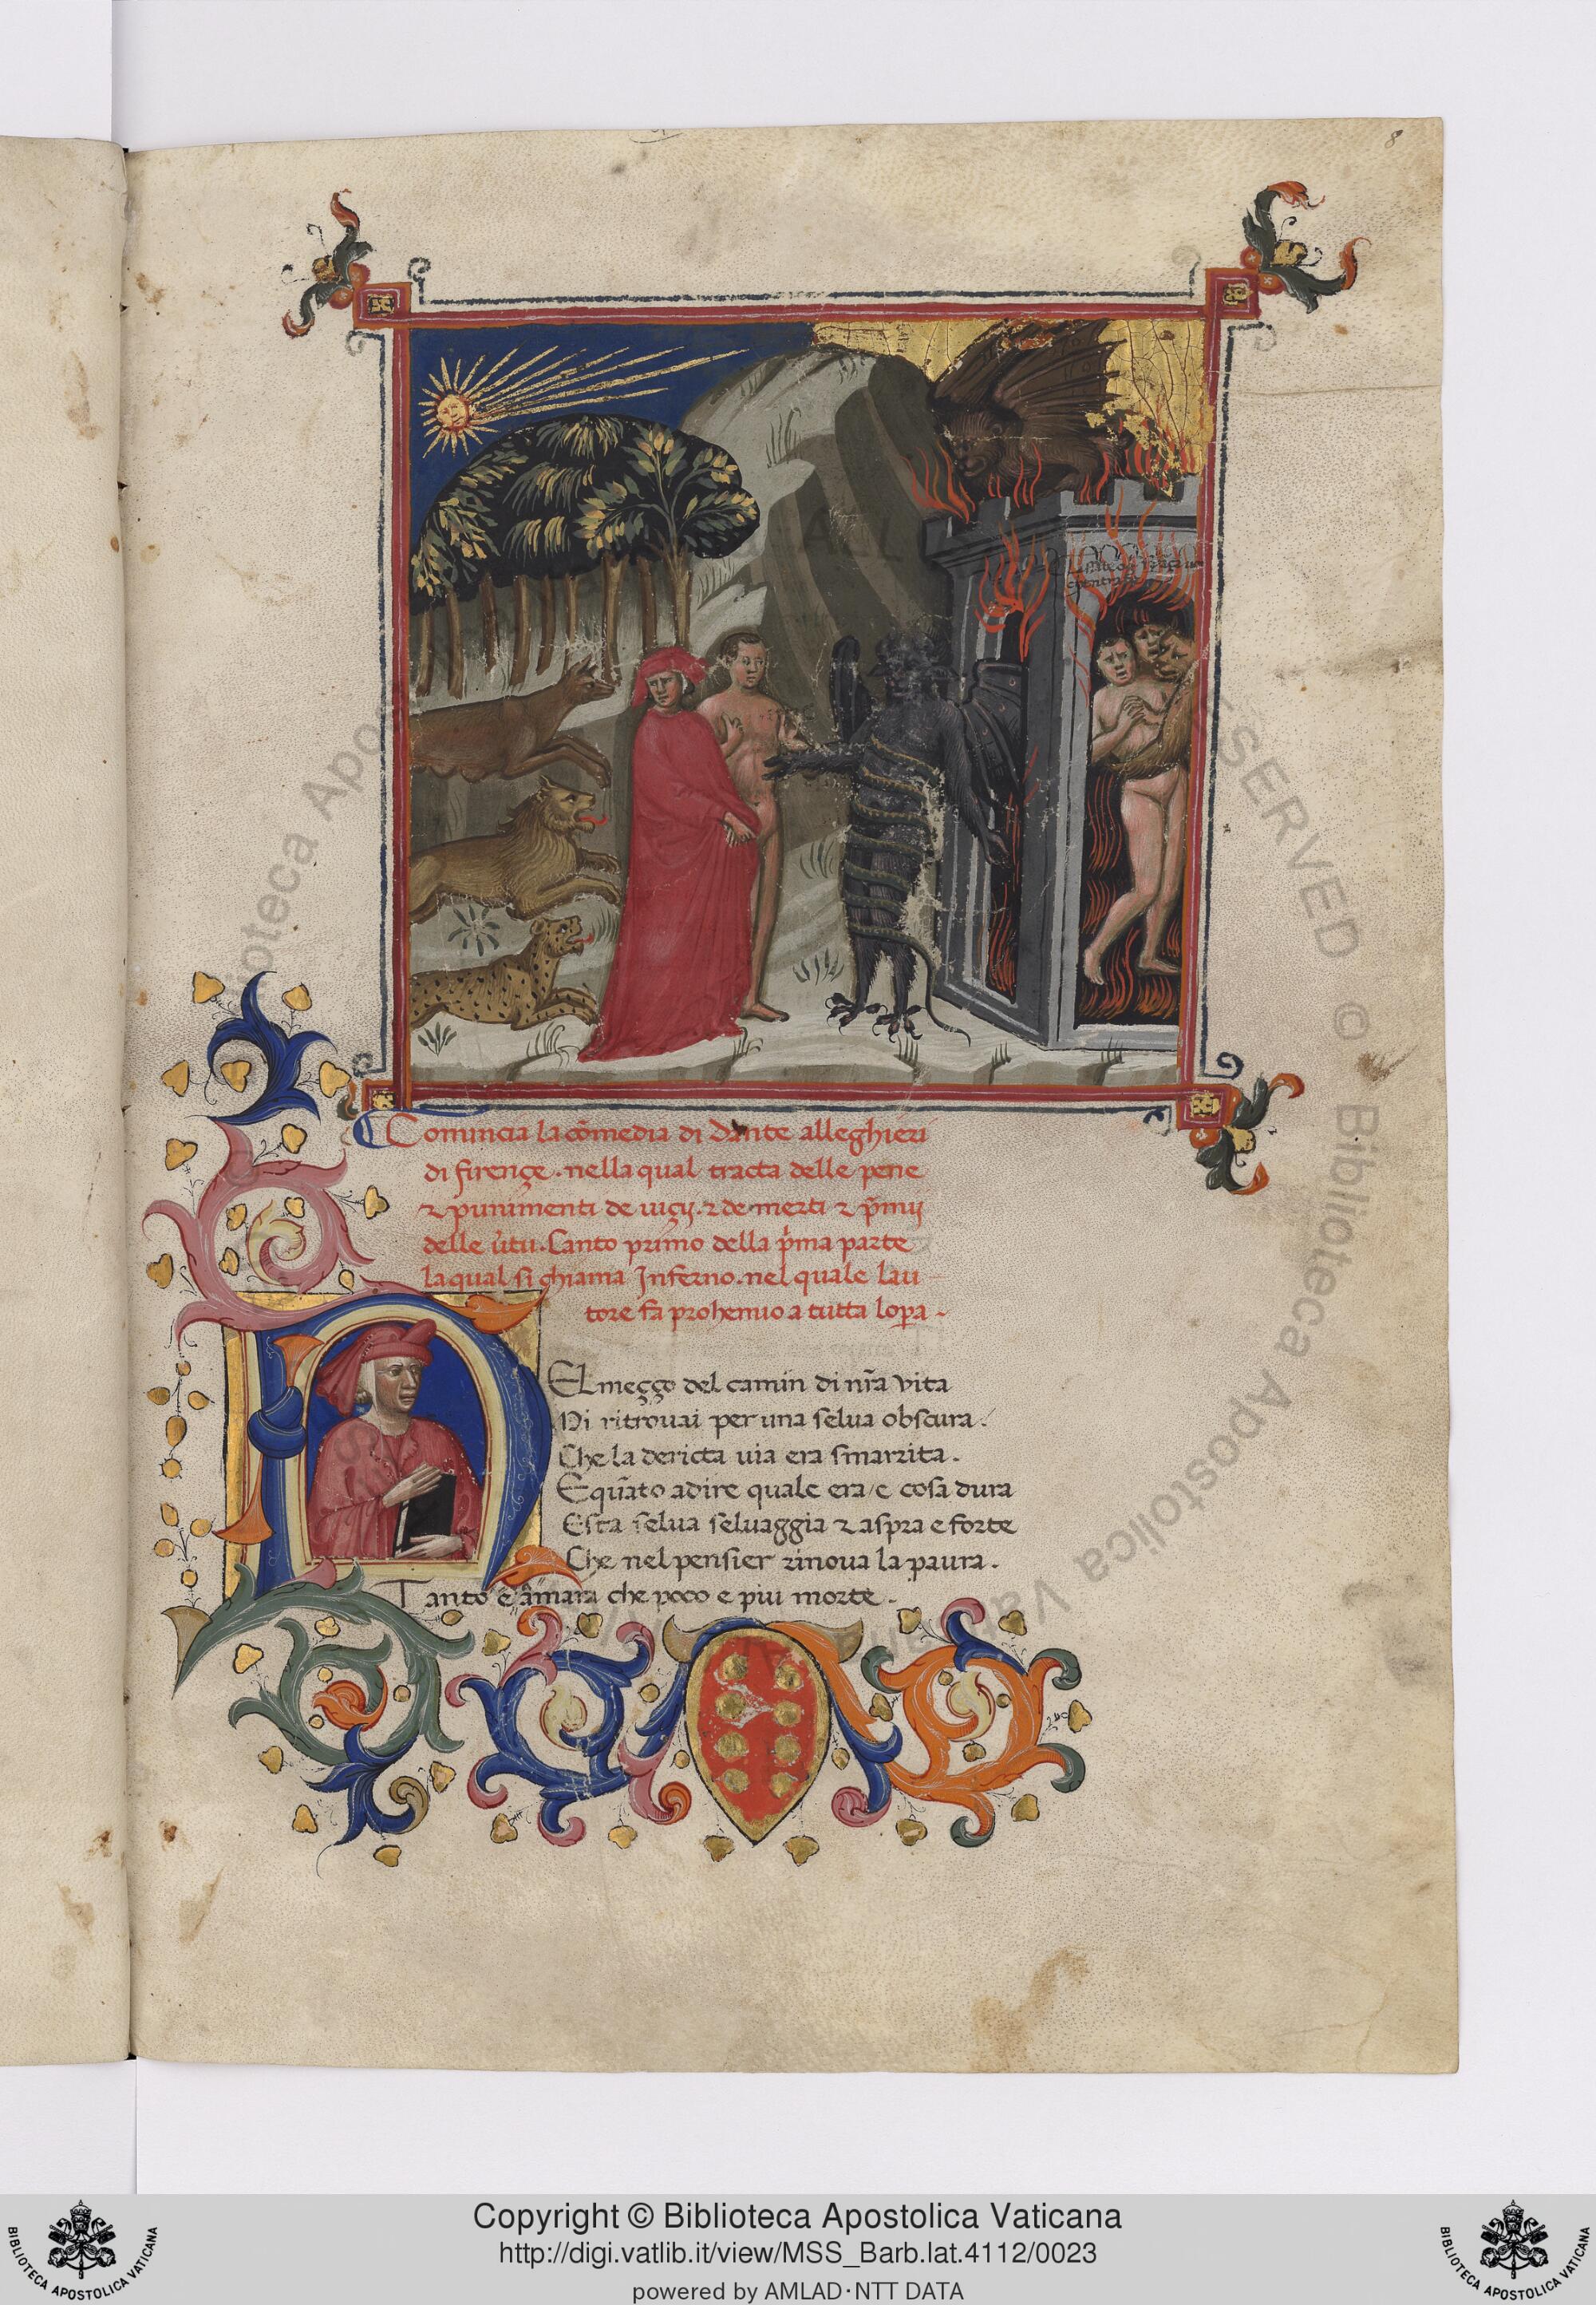 8
Lassate o
ch'entrate
Comincia la cōmedia di Dante alleghieri
di firenze . nella qual tracta delle pene
⁊ punimenti de uiçij . ⁊ de merti ⁊ p̄mij
delle u̓tu . Canto primo della p̓ma parte
la qual si chiama Inferno . nel quale lau
tore fa prohemio a tutta lopa -
NEl meçço del camin di nr̄a vita
Mi ritrouai per una selua obscura .
Che la dericta uia era smarrita .
Equāto adire quale era / e cosa dura
Esta selua seluaggia ⁊ aspra e forte
Che nel pensier rinoua la paura .
Tanto e amara che poco e piu morte .
Copyright © Biblioteca Apostolica Vaticana
http://digi.vatlib.it/view/MSS_Barb.lat.4112/0023
powered by AMLAD·NTT DATA
BIBLIOTECA APOSTOLICA VATICANA
BIBLIOTECA APOSTOLICA VATICANA